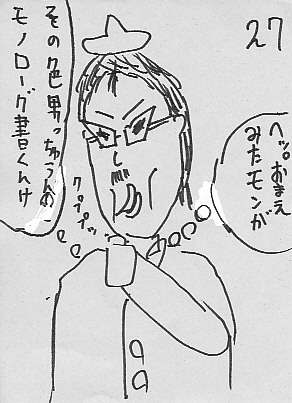 27
ヘッ。おまえ
みたモンが
その色男っちゅうんの
モノローグ書くんけ
クププッ